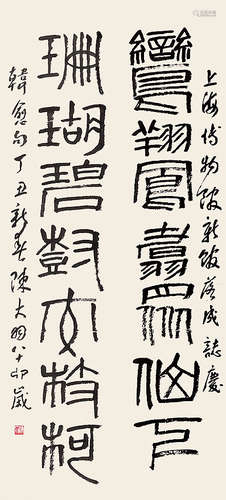 上海博物館新館落成誌慶
鸞翔鳳翥眾仙下
珊瑚碧樹交枝柯
韓愈句丁丑新春陳大羽八十卯歲